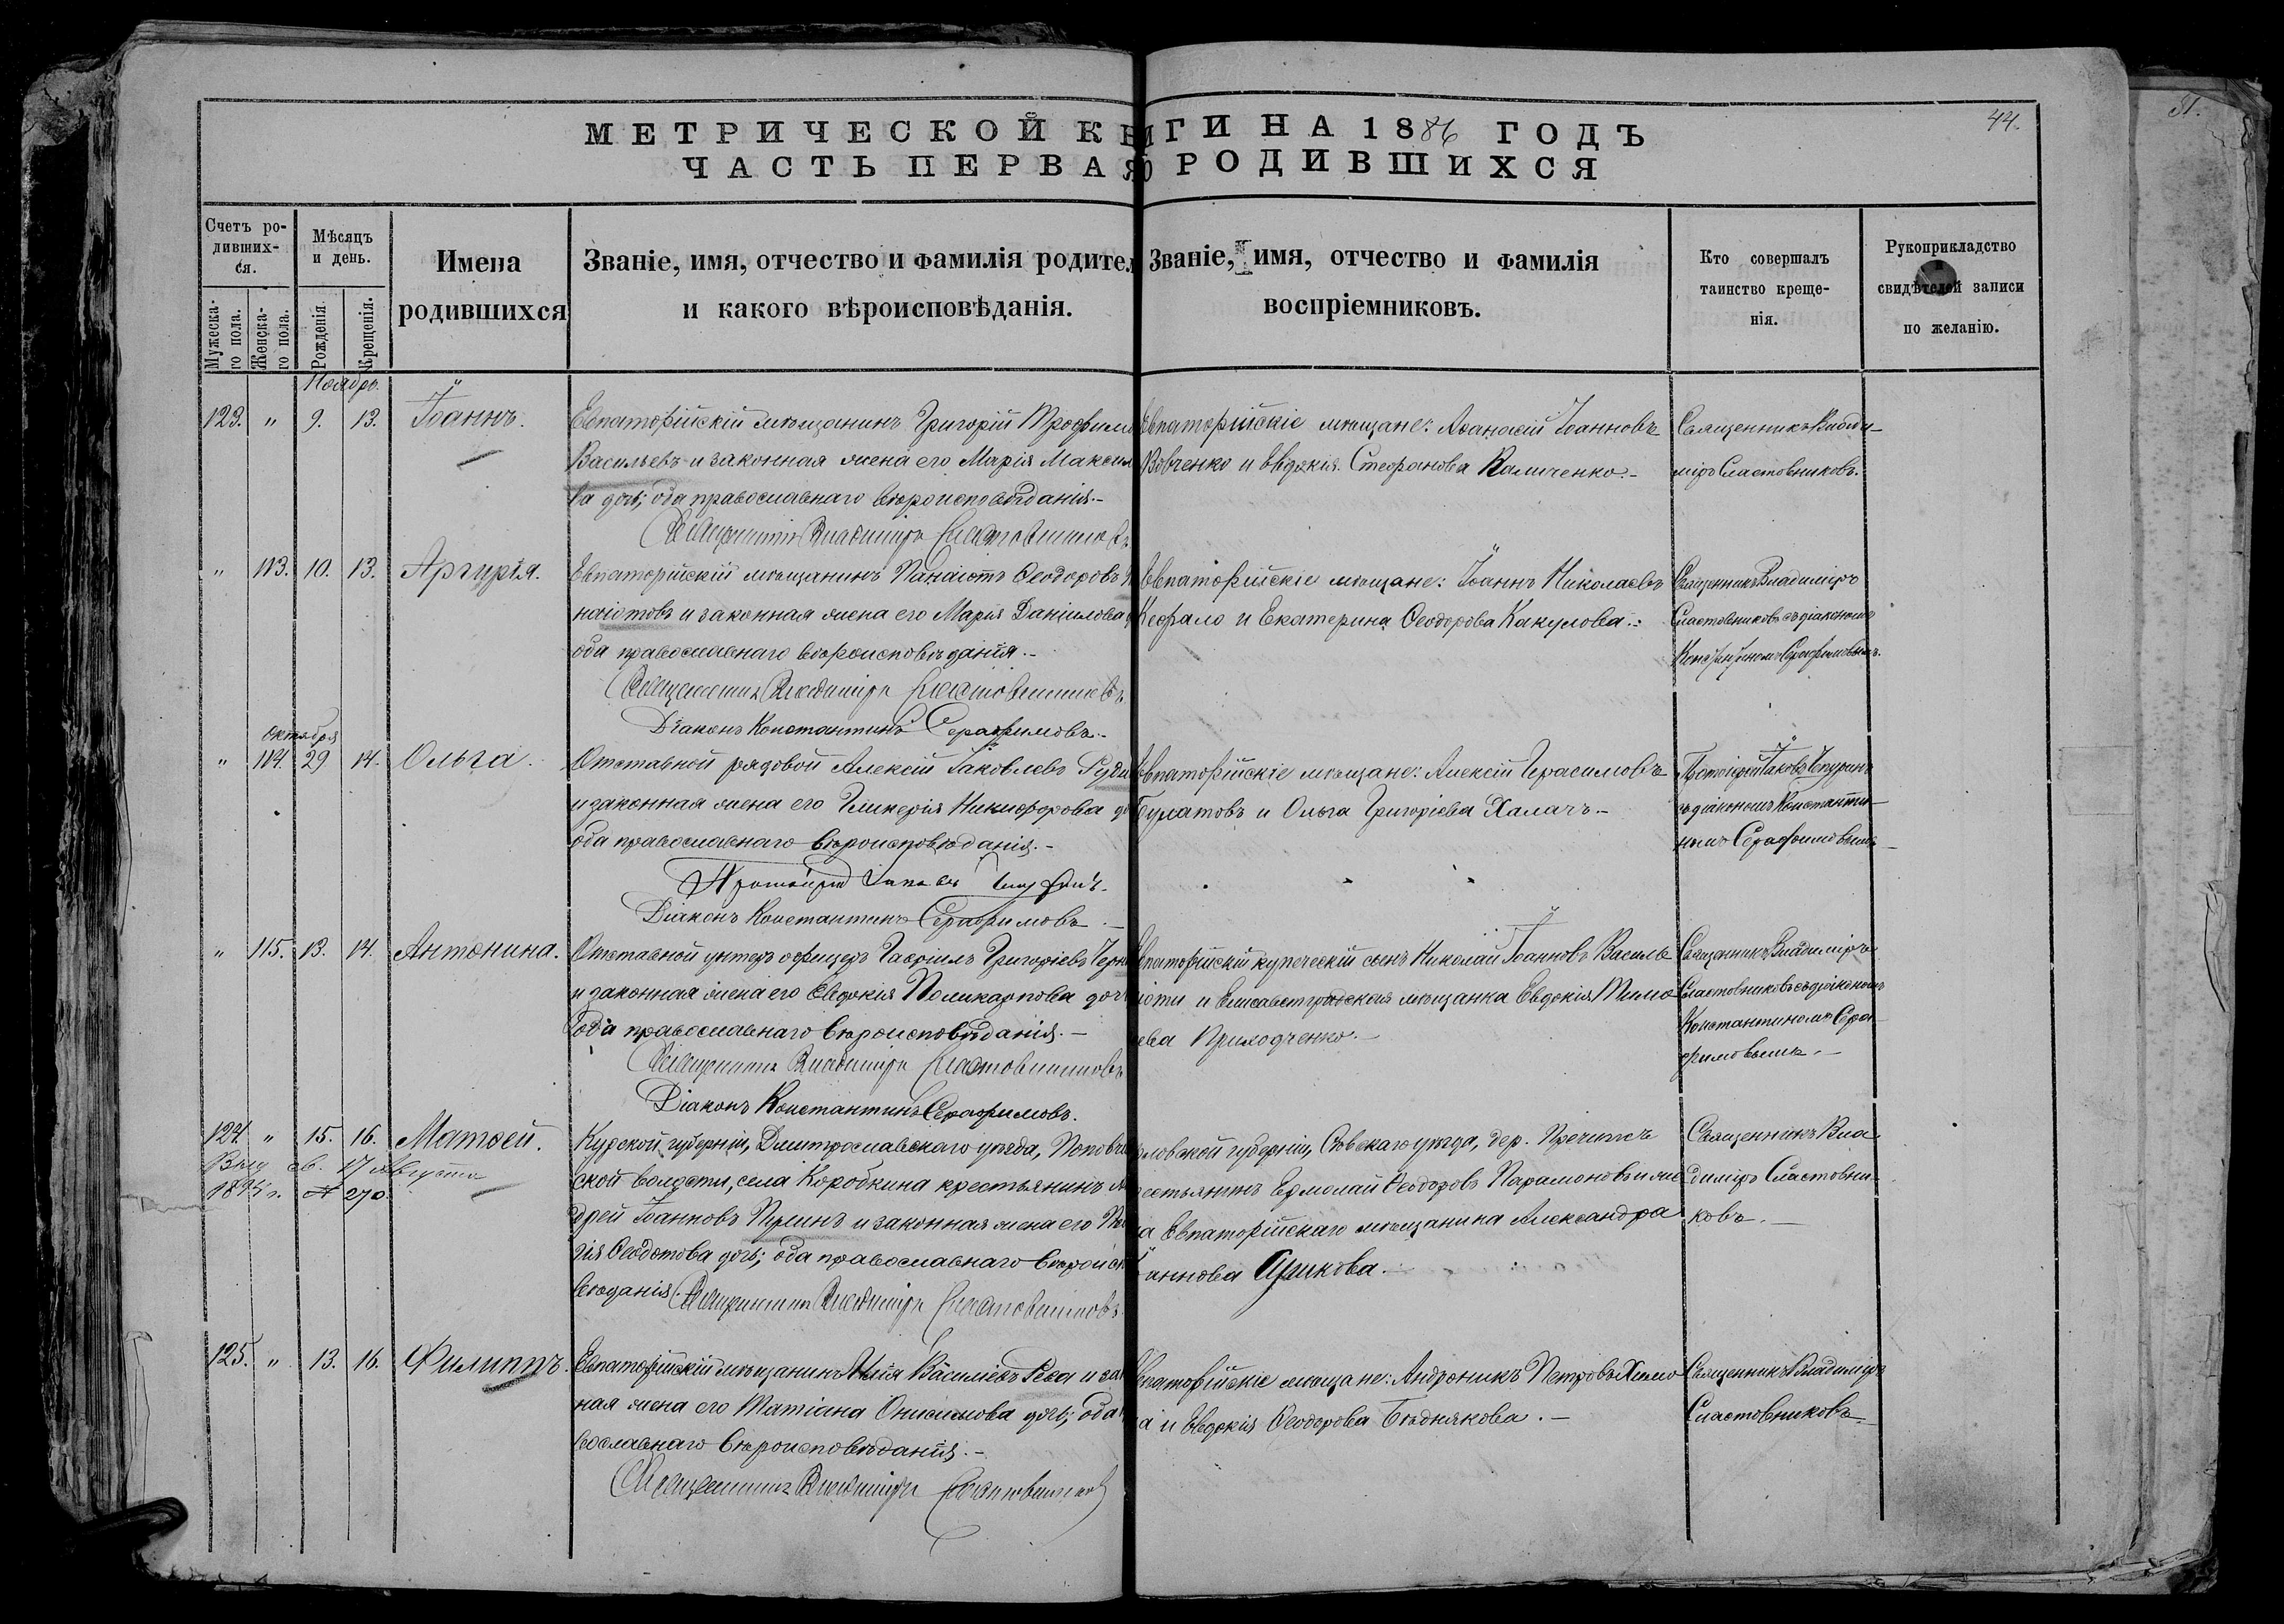 МЕТРИЧЕСКОЙ КНИГИ НА 1886 ГОДЪ
44.
51.
ЧАСТЬ ПЕРВАЯ О РОДИВШИХСЯ
Счетъ родивших-
ся.
Мужеска-
го пола.
Женска-
го пола.
Мѣсяцъ
и день.
Рожденія
Крещенія.
Имена
родившихся
Званіе, имя, отчество и фамилія родител
и какого вѣроисповѣданія.
Званіе, имя, отчество и фамилія
воспріемниковъ.
Кто совершалъ
таинство креще-
нія.
Рукоприкладство
свидѣтелей записи
по желанію.
Ноябрь.
123. " 9. 13. Іоаннъ.
Евпаторійскій мѣщанинъ Григорій Трофим
Васильевъ и законная жена его Марія Максим
ва дочь; оба православнаго вѣроисповѣданія.-
Священникъ Владиміръ Сластовниковъ
Евпаторійскіе мѣщане: Аѳанасій Іоанновъ
Вовченко и Евдокія Стефанова Каличенко.-
Священникъ Влади-
міръ Сластовниковъ.
" 113. 10. 13. Аргирія.
Евпаторійскій мѣщанинъ Панаіотъ Ѳеодоровъ
наіотовъ и законная жена его Марія Даніилова
оба православнаго вѣроисповѣданія.-
Священникъ Владиміръ Сластовниковъ
Діаконъ Константинъ Серафимовъ.-
Евпаторійскіе мѣщане: Іоаннъ Николаевъ
Кефало и Екатерина Ѳеодорова Какулова.-
Священникъ Владиміръ
Сластовниковъ съ діакономъ
Константиномъ Серафимовымъ.
Октября
" 114. 29 14. Ольга.
Отставной рядовой Алексій Іаковлевъ Руди
и законная жена его Гликерія Никифорова до
оба православнаго вѣроисповѣданія.-
Протоіерей Іаковъ Чепуринъ.
Діаконъ Константинъ Серафимовъ.-
Евпаторійскіе мѣщане: Алексій Герасимовъ
Булатовъ и Ольга Григоріева Халачъ.-
Протоіерей Іаковъ Чепуринъ
съ діакономъ Константи-
номъ Серафимовымъ
" 115. 13. 14. Антонина.
Отставной унтеръ офицеръ Гавріилъ Григоріевъ Черн
и законная жена его Евдокія Поликарпова доч
оба православнаго вѣроисповѣданія.-
Священникъ Владиміръ Сластовниковъ
Діаконъ Константинъ Серафимовъ.
Евпаторійскій купеческій сынъ Николай Іоанновъ Василь
іоти и Елисаветградская мѣщанка Евдокія Тимо
еева Приходченко.-
Священникъ Владиміръ
Сластовниковъ съ діакономъ
Константиномъ Сера-
фимовымъ.-
124. " 15. 16. Матѳей.
Выд св. 17 Августа
270
Курской губерніи, Дмитрославскаго уѣзда, Попов
ской волости, села Коробкина крестьянинъ А
дрей Іоанновъ и законная жена его
гія Ѳеодотова дочь; оба православнаго вѣроисп
вѣданія. Священникъ Владиміръ Сластовниковъ.
рловской губерніи, Сѣвскаго уѣзда, дер.
рестьянинъ Ермолай Ѳеодоровъ Парамоновъ и же
а Евпаторійскаго мѣщанина Александра
аннова
Священникъ Вла
диміръ Сластовни-
ковъ.-
125. " 13. 16. Филиппъ.
Евпаторійскій мѣщанинъ Илія Василіевъ и зак
ная жена его Татіана Онисимова дочь; оба
вославнаго вѣроисповѣданія.-
Священникъ Владиміръ Сластовниковъ
Евпаторійскіе мѣщане: Андроникъ Петровъ
а и Евдокія Ѳеодорова Бѣднякова.-
Священникъ Владиміръ
Сластовниковъ.